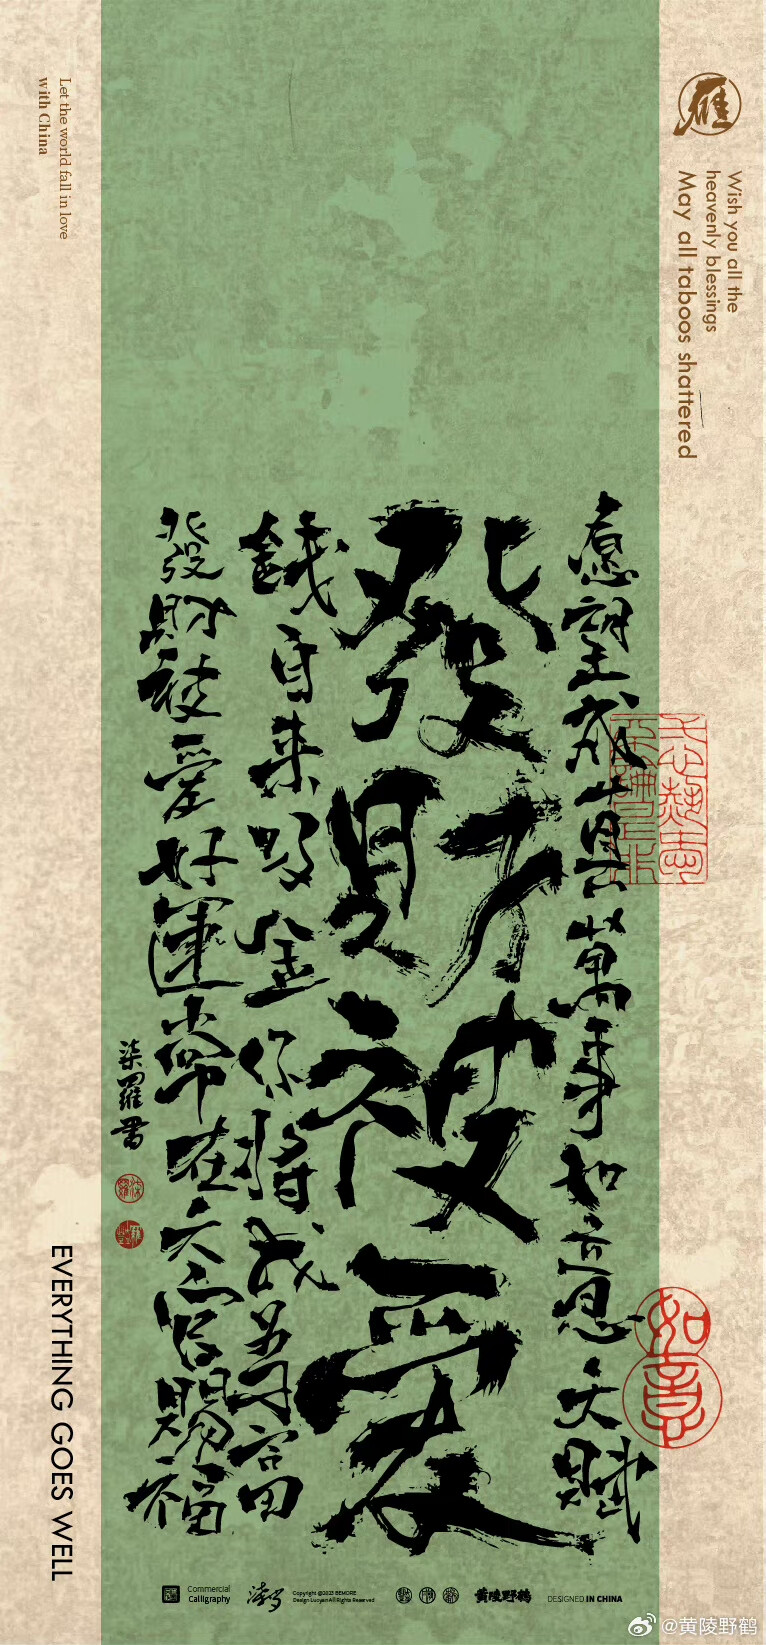 雁
Wish you all the
heavenly blessings
May all taboos shattered
愿望成真萬事如意天賦
發財被愛
錢自来吸金你將成富
發財被愛好運常在天官賜福
柒羅書
如意
Let the world fall in love
with China
EVERYTHING GOES WELL
Commercial
Calligraphy
Copyright @2023 BEMORE
Design Luoyan All Rights Reserved
黄陵野鹤
DESIGNED IN CHINA
@黄陵野鹤